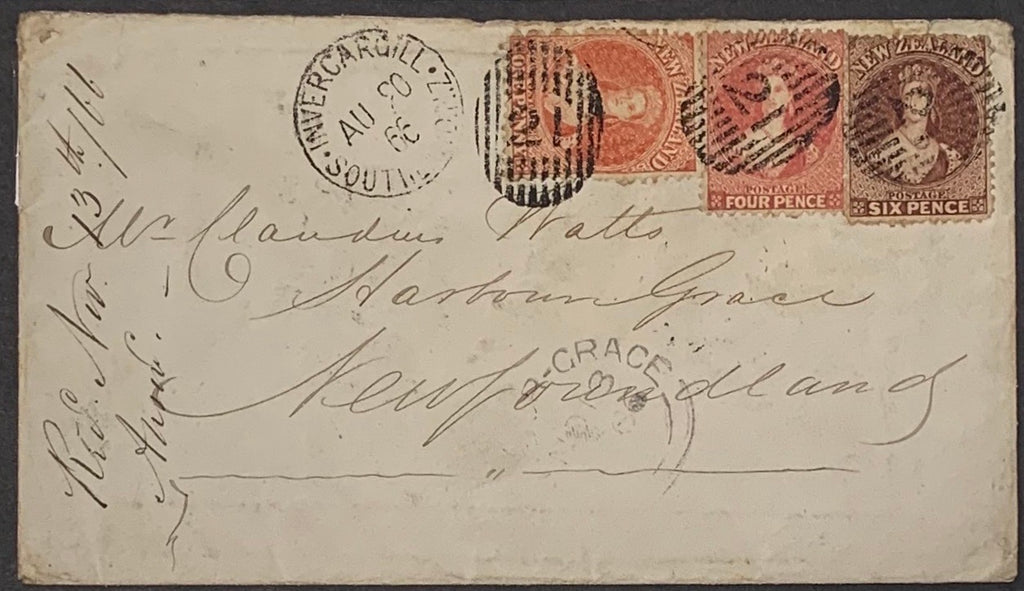 INVERCARGILL · N.Z.
AU 20
66
SOUTH
NEW ZEALAND
ONE PENNY
NEW ZEALAND
POSTAGE
FOUR PENCE
NEW ZEALAND
POSTAGE
SIX PENCE
Mr Claudius Watts
Harbour Grace
Newfoundland
GRACE
Recd. Nov. 13th/66
Answd.